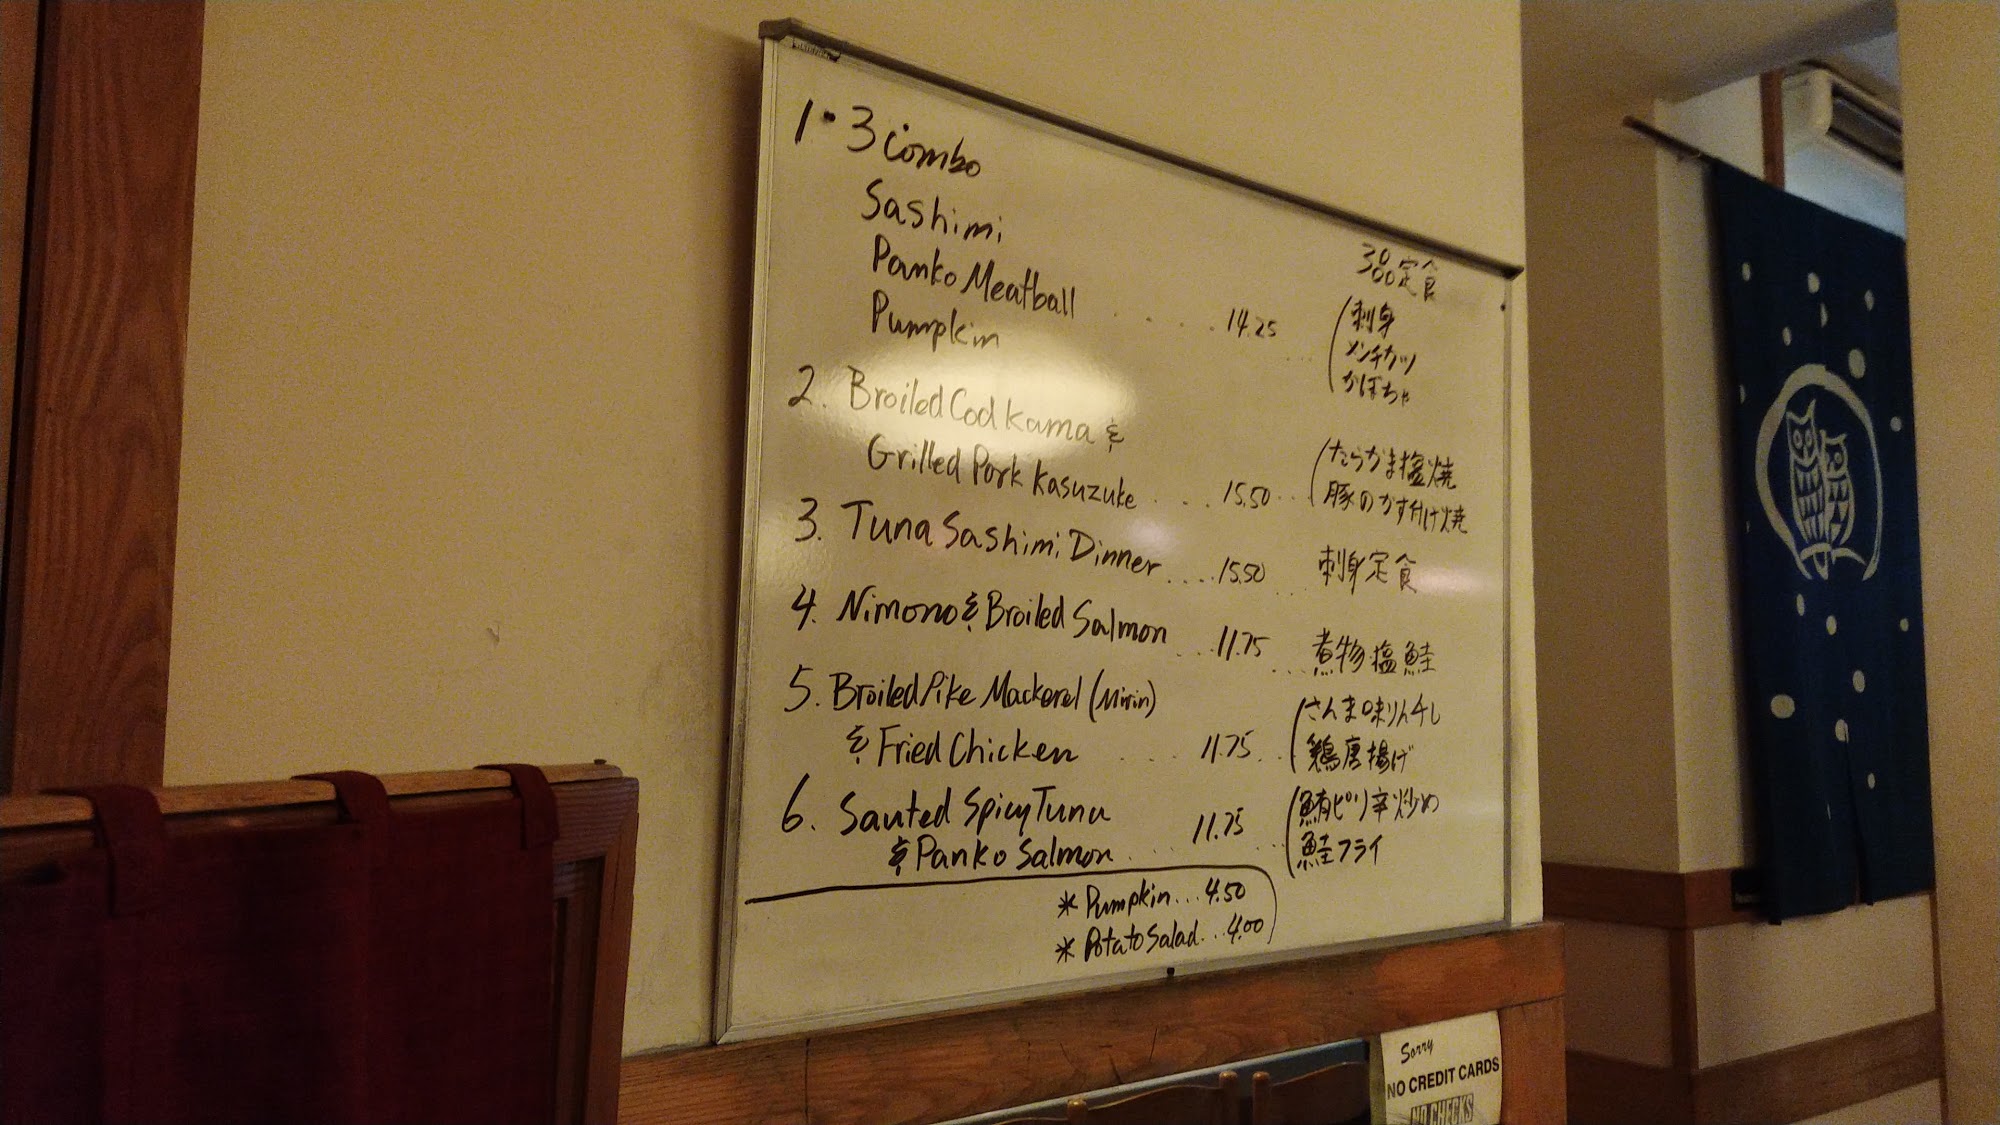 1. 3 Combo
Sashimi
Panko Meatball .... 14.25
Pumpkin
3品定食
刺身
メンチカツ
かぼちゃ
2. Broiled Cod Kama &
Grilled Pork Kasuzuke .... 15.50 ...
たらかま塩焼
豚のかす付け焼
3. Tuna Sashimi Dinner .... 15.50 ... 刺身定食
4. Nimono & Broiled Salmon .... 11.75 ... 煮物塩鮭
5. Broiled Pike Mackerel (Mirin)
& Fried Chicken .... 11.75 ...
さんま味りん干し
鶏唐揚げ
6. Sauted Spicy Tuna
& Panko Salmon .... 11.75 ...
鮪ピリ辛炒め
鮭フライ
* Pumpkin... 4.50
* Potato Salad... 4.00
Sorry
NO CREDIT CARDS
NO CHECKS